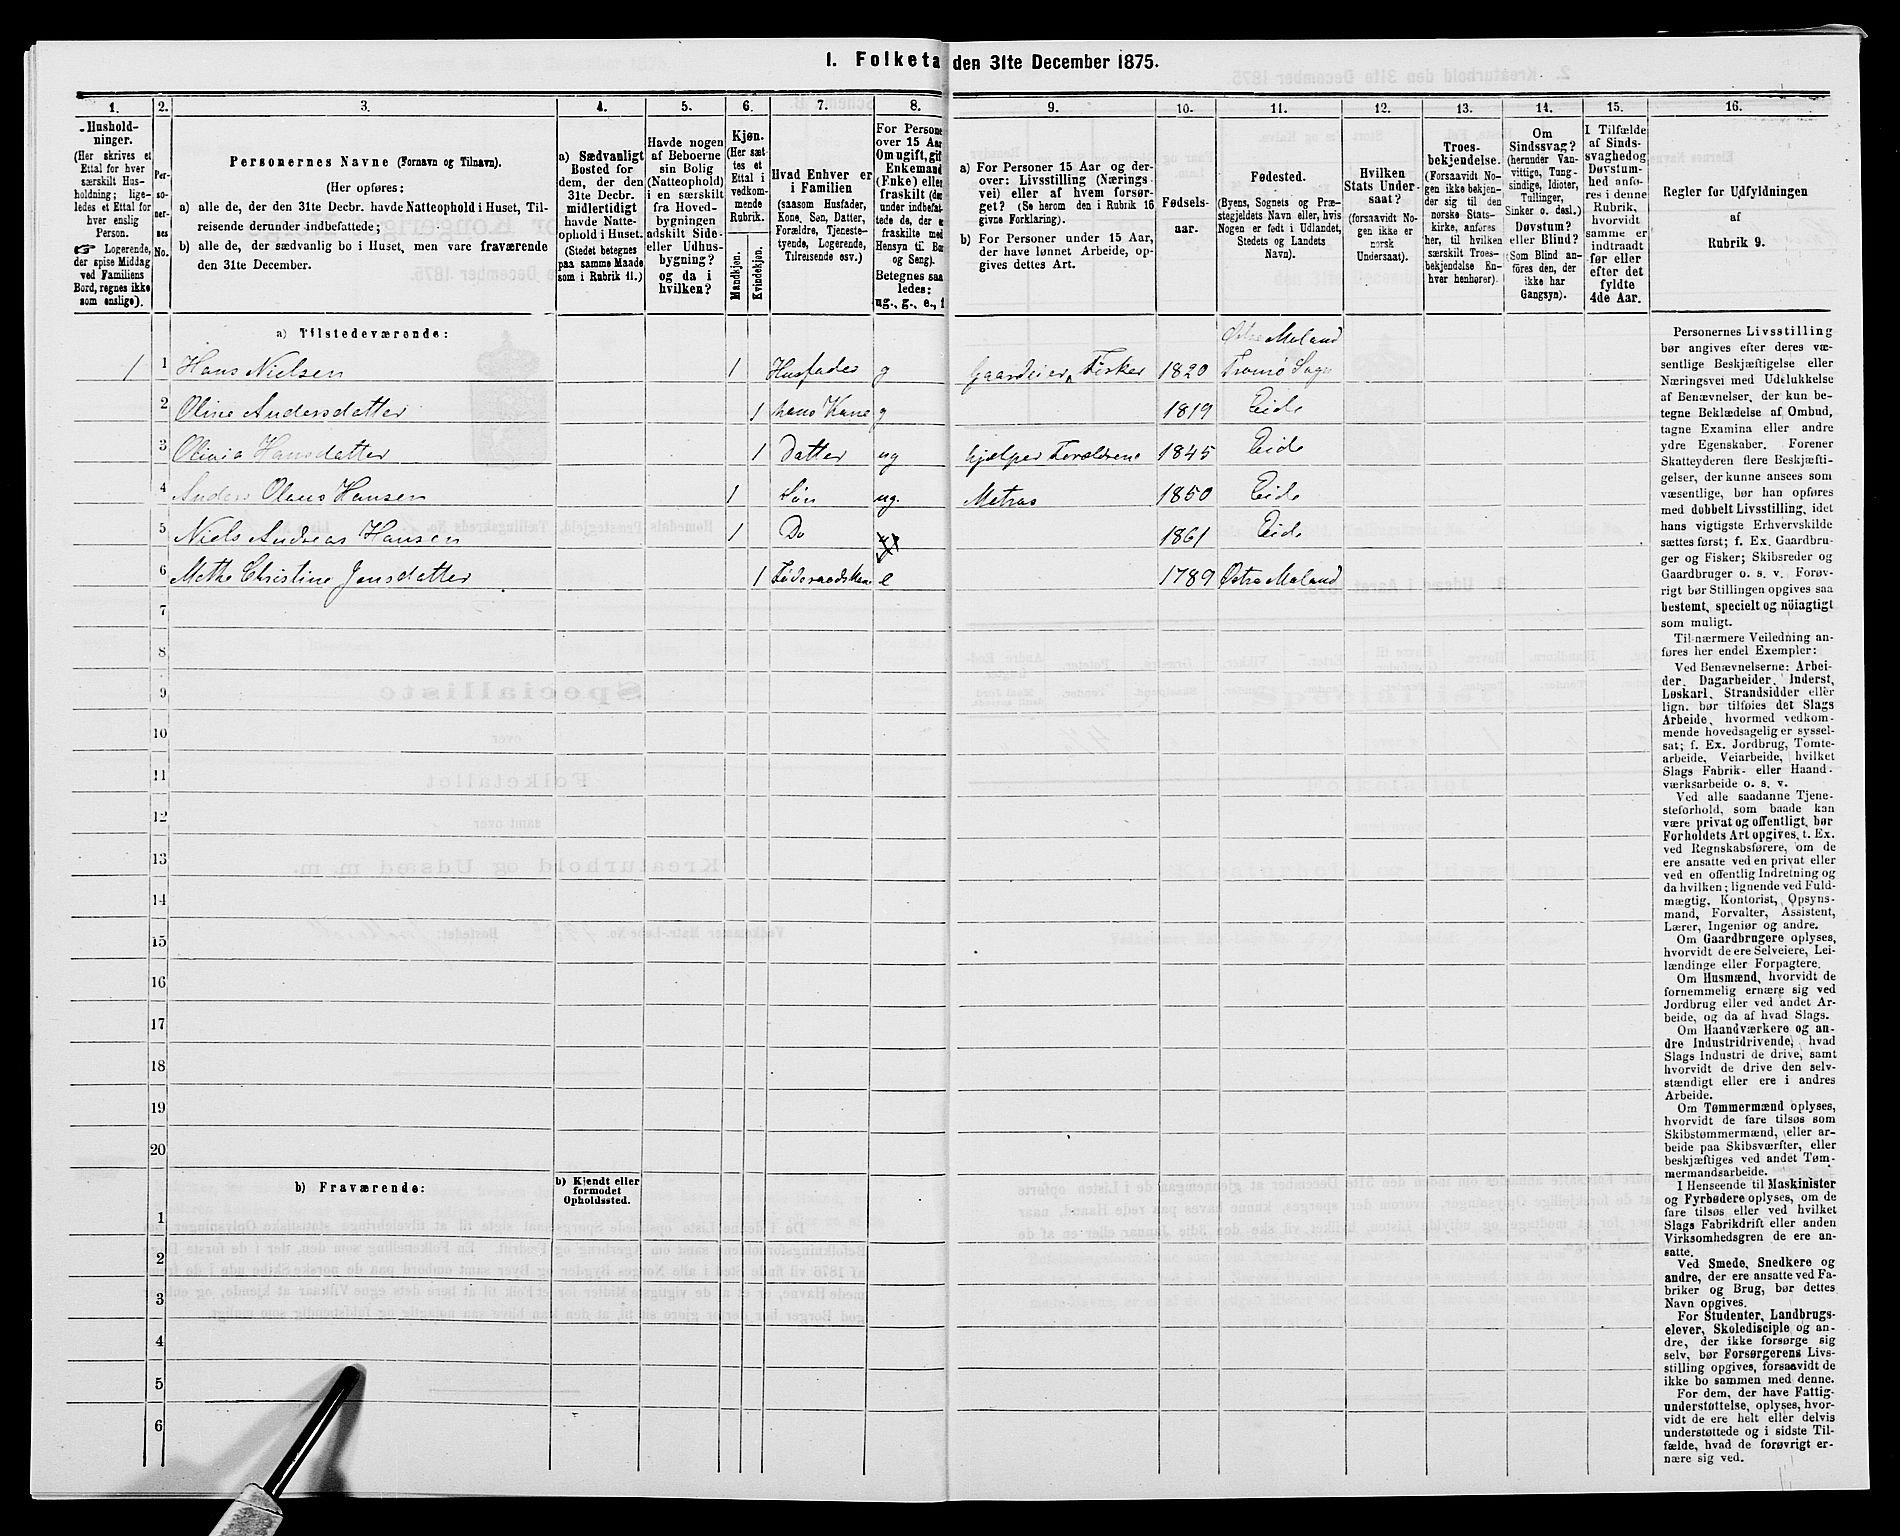 I. Folketa den 31te December 1875.
1. 2. 3. 4. 5. 6. 7. 8. 9. 10. 11. 12. 13. 14. 15. 16.
Hushold-
ninger.
(Her skrives et
Ettal for hver
særskilt Hus-
holdning; lige-
ledes et Ettal for
hver enslig
Person.
☞ Logerende,
der spise Middag
ved Familiens
Bord, regnes ikke
som enslige).
Per-
so-
ner-
nes
No.
Personernes Navne (Fornavn og Tilnavn).
(Her opføres:
a) alle de, der den 31te Decbr. havde Natteophold i Huset, Til-
reisende derunder indbefattede;
b) alle de, der sædvanlig bo i Huset, men vare fraværende
den 31te December.
a) Sædvanligt
Bosted for
dem, der den
31te Decbr.
midlertidigt
havde Natte-
ophold i Huset.
(Stedet betegnes
paa samme Maade
som i Rubrik 11.)
Havde nogen
af Beboerne
sin Bolig
(Natteophold)
i en særskilt
fra Hoved-
bygningen
adskilt Side-
eller Udhus-
bygning?
og da i
hvilken?
Kjøn.
(Her sæt-
tes et
Ettal i
vedkom-
mende
Rubrik.
Mandkjøn.
Kvindekjøn.
Hvad Enhver er
i Familien
(saasom Husfader,
Kone, Søn, Datter,
Forældre, Tjeneste-
tyende, Logerende,
Tilreisende osv.)
For Persone
over 15 Aar
Om ugift, gif
Enkemand
(Enke) elle
fraskilt (de
under indbefat
tede de, der e
fraskilte med
Hensyn til Bo
og Seng).
Betegnes saa
ledes:
ug., g., e., f
a) For Personer 15 Aar og der-
over: Livsstilling (Nærings-
vei) eller af hvem forsør-
get? (Se herom den i Rubrik 16
givne Forklaring).
b) For Personer under 15 Aar,
der have lønnet Arbeide, op-
gives dettes Art.
Fødsels-
aar.
Fødested.
(Byens, Sognets og Præ-
stegjeldets Navn eller, hvis
Nogen er født i Udlandet,
Stedets og Landets
Navn).
Hvilken
Stats Under-
saat?
(forsaavidt No-
gen ikke er
norsk
Undersaat).
Troes-
bekjendelse.
(Forsaavidt No-
gen ikke bekjen-
der sig til den
norske Stats-
kirke, anføres
her, til hvilken
særskilt Troes-
bekjendelse En-
hver henhører).
Om
Sindssvag?
(herunder Van-
vittige, Tung-
sindige, Idioter,
Tullinger,
Sinker o. desl.)
Døvstum?
eller Blind?
(Som Blind an-
føres den, der
ikke har
Gangsyn).
I Tilfælde
af Sinds-
svaghed og
Døvstum-
hed anfø-
res i denne
Rubrik,
hvorvidt
samme er
indtraadt
før eller
efter det
fyldte
4de Aar.
Regler for Udfyldningen
af
Rubrik 9.
a) Tilstedeværende:
Østre Moland
1 1 Hans Nielsen 1 Husfader g Gaardeier, Fisker 1820 Tromø Sogn
2 Oline Andersdatter 1 hans Kone g 1819 Eide
3 Olivia Hansdatter 1 Datter ug hjælper Forældrene 1845 Eide
4 Anders Olaus Hansen 1 Søn ug. Matros 1850 Eide
5 Niels Andreas Hansen 1 Do 1861 Eide
6 Methe Christine Jensdatter 1 Føderaadskone e 1789 Østre Moland
7
8
9
10
11
12
13
14
15
16
17
18
19
20
b) Fraværende:
b) Kjendt eller
formodet
Opholdssted.
1
2
3
4
5
6
Personernes Livsstilling
bør angives efter deres væ-
sentlige Beskjæftigelse eller
Næringsvei med Udelukkelse
af Benævnelser, der kun be-
tegne Beklædelse af Ombud,
tagne Examina eller andre
ydre Egenskaber. Forener
Skatteyderen flere Beskjæfti-
gelser, der kunne ansees som
væsentlige, bør han opføres
med dobbelt Livsstilling, idet
hans vigtigste Erhvervskilde
sættes først; f. Ex. Gaardbru-
ger og Fisker; Skibsreder og
Gaardbruger o. s. v. Forøv-
rigt bør Stillingen opgives saa
bestemt, specielt og nøiagtigt
som muligt.
Til nærmere Veiledning an-
føres her endel Exempler:
Ved Benævnelserne: Arbei-
der, Dagarbeider, Inderst,
Løskarl, Strandsidder eller
lign. bør tilføies det Slags
Arbeide, hvormed vedkom-
mende hovedsagelig er syssel-
sat; f. Ex. Jordbrug, Tomte-
arbeide, Veiarbeide, hvilket
Slags Fabrik- eller Haand-
værksarbeide o. s. v.
Ved alle saadanne Tjene-
steforhold, som baade kan
være privat og offentligt, bør
Forholdets Art opgives, t. Ex.
ved Regnskabsførere, om de
ere ansatte ved en privat eller
ved en offentlig Indretning og
da hvilken; lignende ved Fuld-
mægtig, Kontorist, Opsyns-
mand, Forvalter, Assistent,
Lærer, Ingeniør og andre.
Om Gaardbrugere oplyses,
hvorvidt de ere Selveiere, Lei-
lændinge eller Forpagtere.
Om Husmænd, hvorvidt de
fornemmelig ernære sig ved
Jordbrug eller ved andet Ar-
beide, og da af hvad Slags.
Om Haandværkere og an-
dre Industridrivende, hvad
Slags Industri de drive, samt
hvorvidt de drive den selv-
stændigt eller ere i andres
Arbeide.
Om Tømmermænd oplyses,
hvorvidt de fare tilsøs som
Skibstømmermænd, eller ar-
beide paa Skibsværfter, eller
beskjæftiges ved andet Tøm-
mermandsarbeide.
I Henseende til Maskinister
og Fyrbødere oplyses, om de
fare tilsøs eller ved hvilket
Slags Fabrikdrift eller anden
Virksomhedsgren de ere an-
satte.
Ved Smede, Snedkere og
andre, der ere ansatte ved Fa-
briker og Brug, bør dettes
Navn opgives.
For Studenter, Landbrugs-
elever, Skoledisciple og an-
dre, der ikke forsørge sig
selv, bør Forsørgerens Livs-
stilling opgives, forsaavidt de
ikke bo sammen med denne.
For dem, der have Fattig-
understøttelse, oplyses, hvor-
vidt de ere helt eller delvis
understøttede og i sidste Til-
fælde, hvad de forøvrigt er-
nære sig ved.